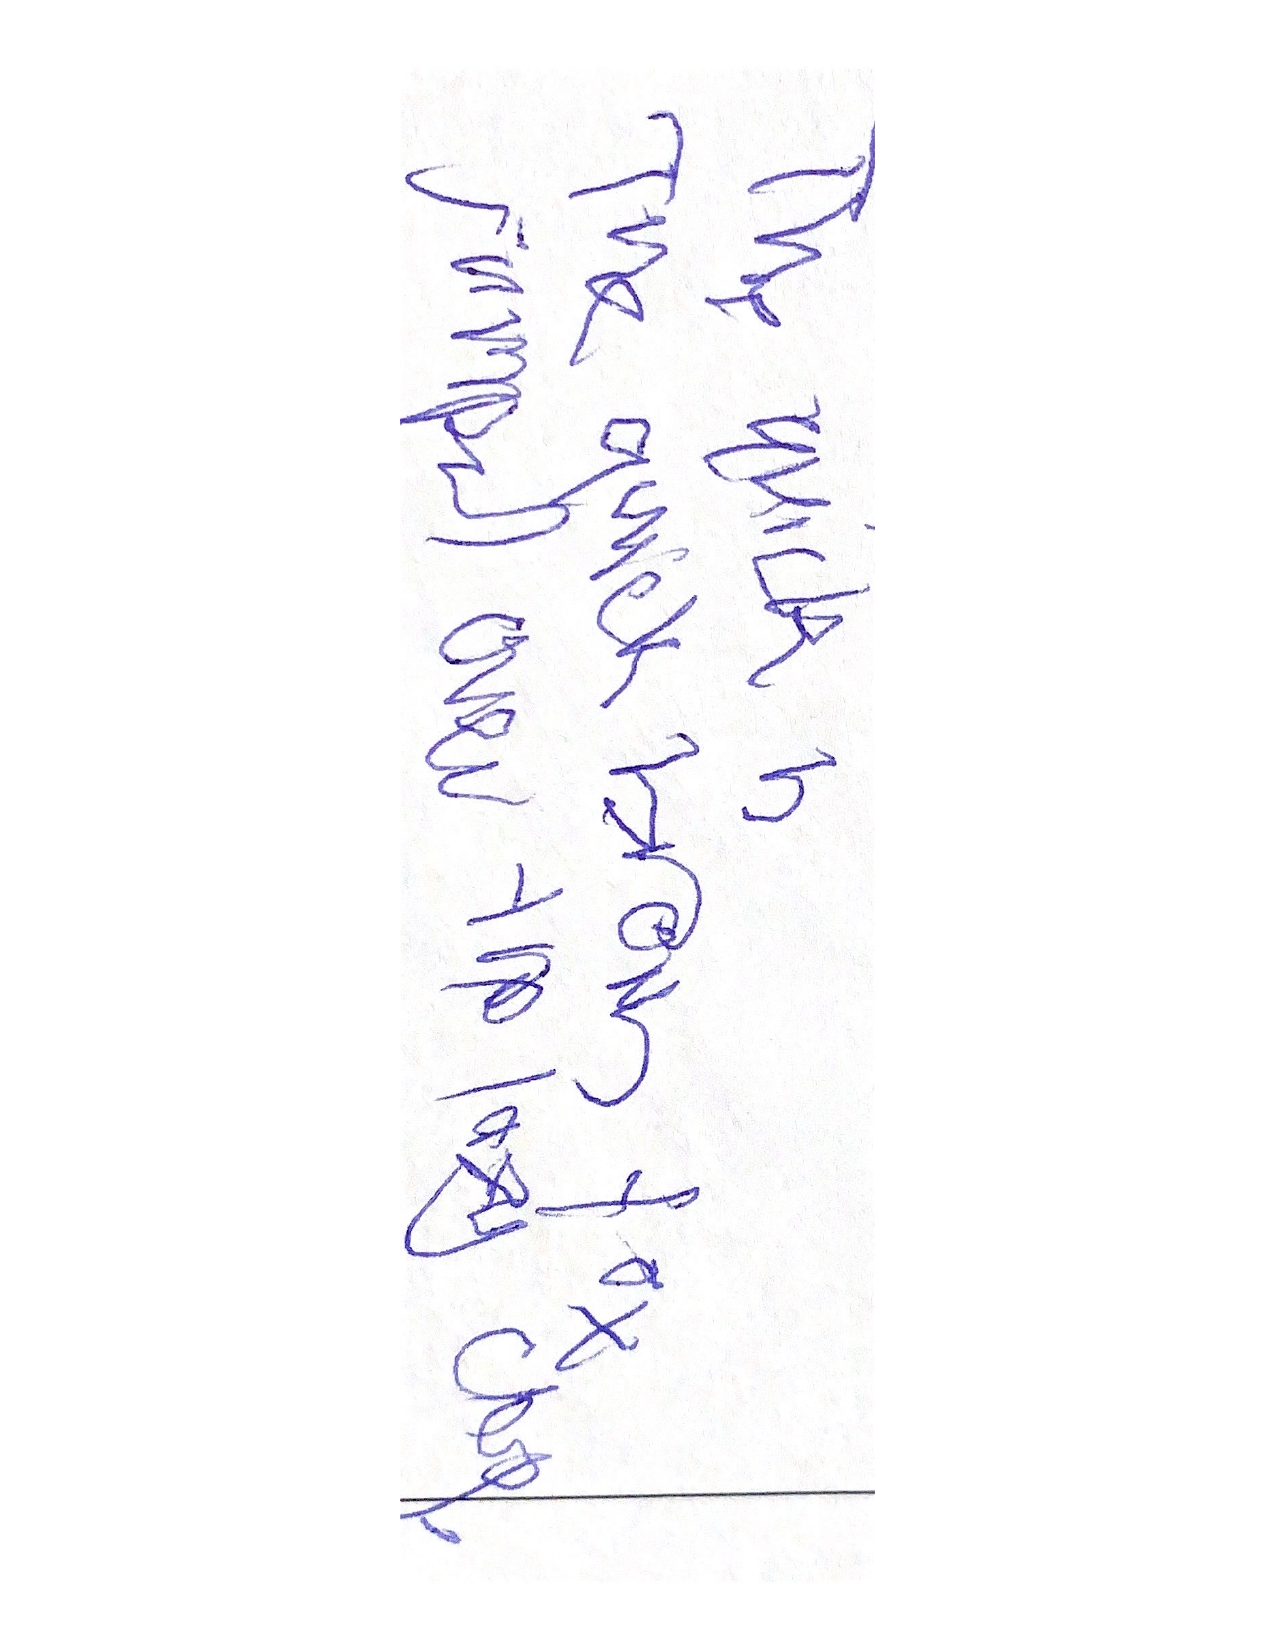 The quick b
The quick brown fox
jumps over the lazy dog.